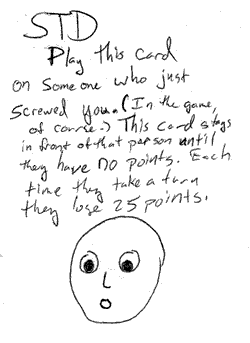 STD
Play this card
on someone who just
screwed you. (In the game,
of course.) This card stays
in front of that person until
they have no points. Each
time they take a turn
they lose 25 points.